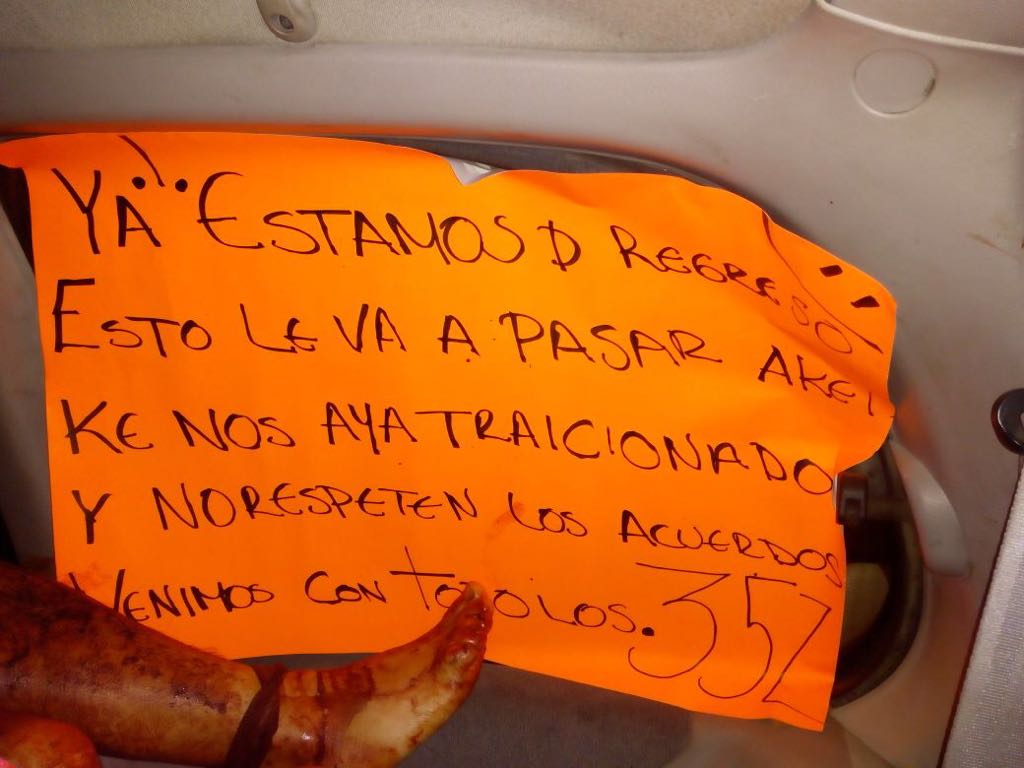 ¡YA ESTAMOS D REGRESO!
ESTO LE VA A PASAR AKEL
KE NOS AYA TRAICIONADO
Y NO RESPETEN LOS ACUERDOS
VENIMOS CON TODO LOS. 35Z